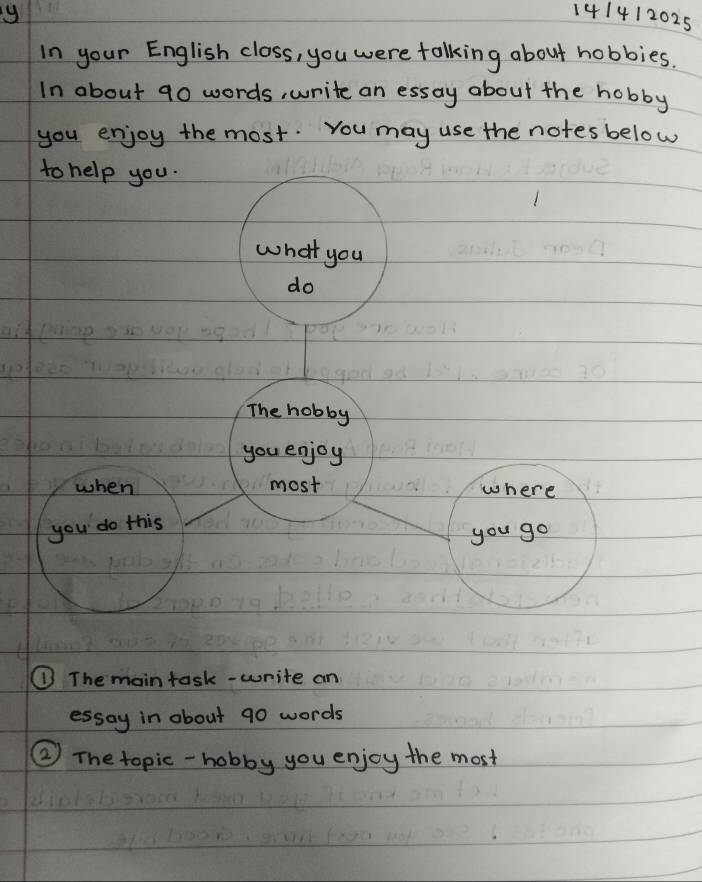 y
14/4/2025
In your English class, you were talking about hobbies.
In about 90 words, write an essay about the hobby
you enjoy the most. You may use the notes below
to help you.
what you
do
The hobby
you enjoy
most
when
you do this
where
you go
① The main task - write an
essay in about 90 words
② The topic - hobby you enjoy the most